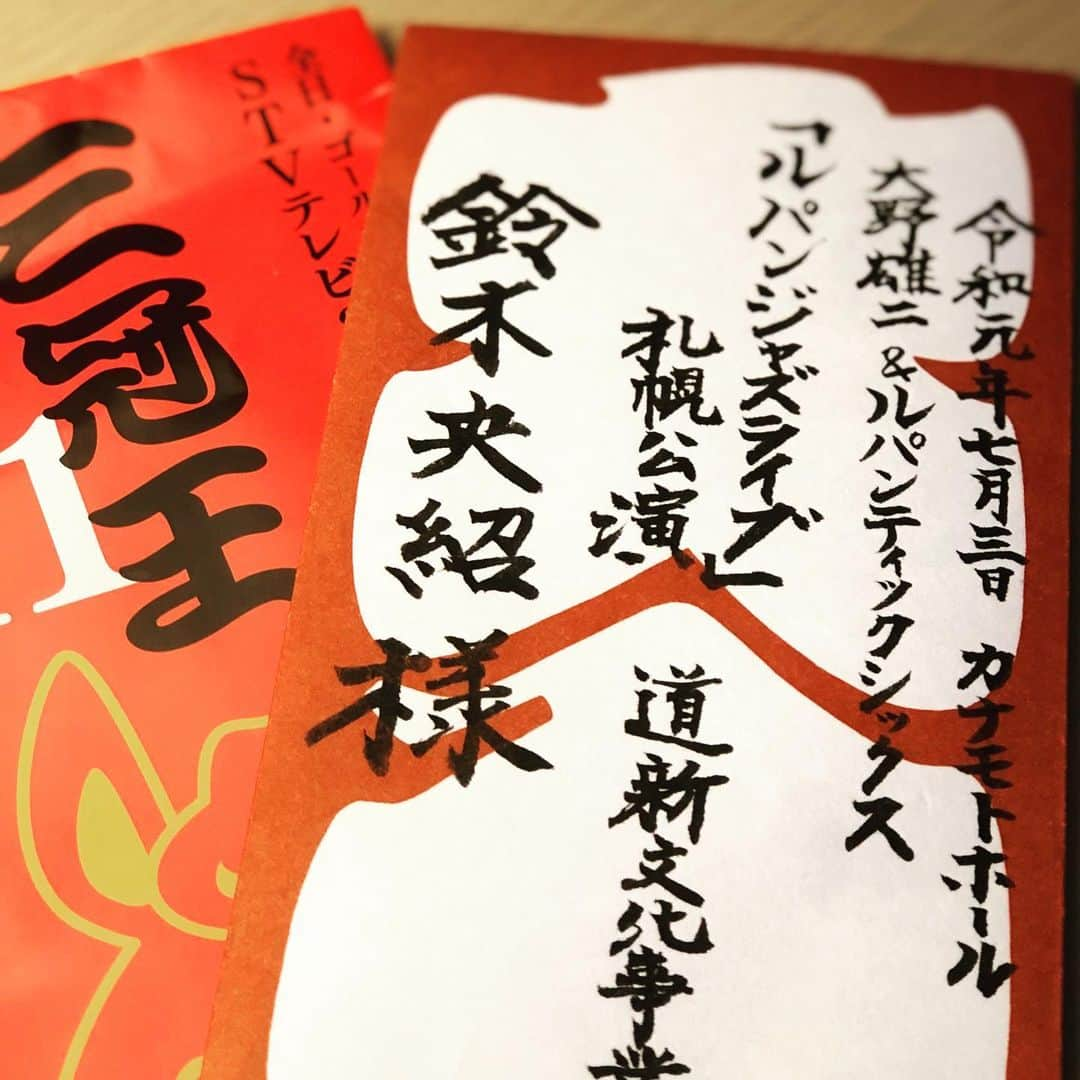 令和元年七月三日 カナモトホール
大野雄二&ルパンティックシックス
「ルパンジャズライブ」
札幌公演
道新文化事業
鈴木央紹様
全日・ゴール
STVテレビ
三冠王
1